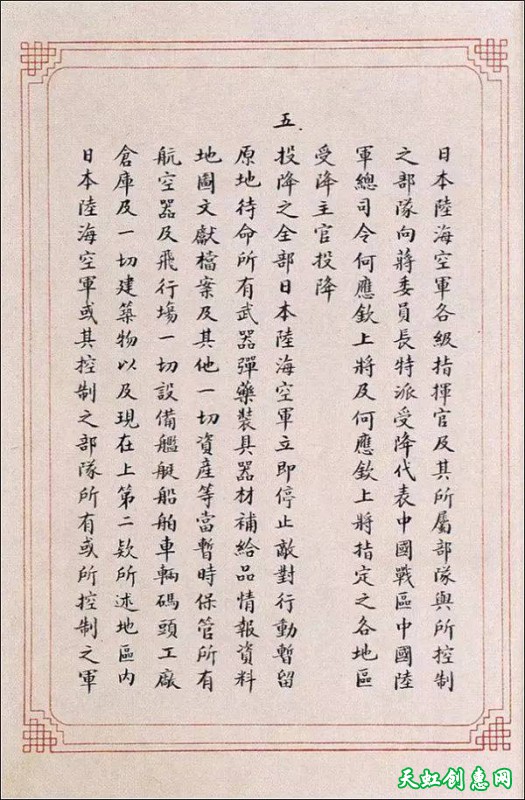 日本陸海空軍各級指揮官及其所屬部隊與所控制
之部隊向蔣委員長特派受降代表中國戰區中國陸
軍總司令何應欽上將及何應欽上將指定之各地區
受降主官投降
五.
投降之全部日本陸海空軍立即停止敵對行動暫留
原地待命所有武器彈藥裝具器材補給品情報資料
地圖文獻檔案及其他一切資產等當暫時保管所有
航空器及飛行場一切設備艦艇船舶車輛碼頭工廠
倉庫及一切建築物以及現在上第二欵所述地區內
日本陸海空軍或其控制之部隊所有或所控制之軍
天虹创惠网